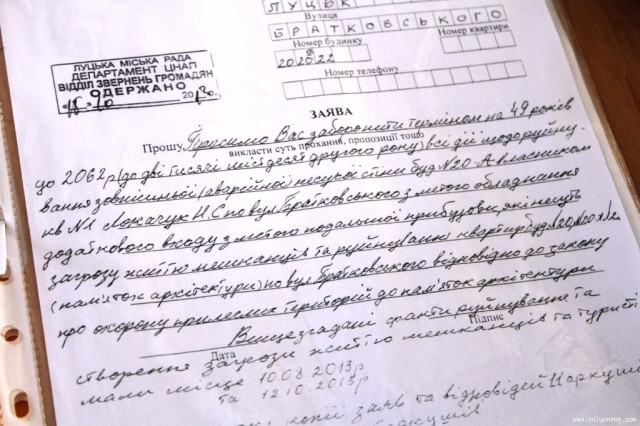 ЛУЦЬК
Вулиця
БРАТКОВСЬКОГО
Номер будинку
Номер квартири
20 20 22
Номер телефону
ЛУЦЬКА МІСЬКА РАДА
ДЕПАРТАМЕНТ ЦНАП
ВІДДІЛ ЗВЕРНЕНЬ ГРОМАДЯН
ОДЕРЖАНО
20
ЗАЯВА
Прошу Просимо Вас заборонити терміном на 49 років
викласти суть прохання, пропозиції тощо
до 2062р (до дві тисячі шістдесят другого року) всі дії щодо руйну-
вання зовнішньої (аварійної) несучої стіни буд №20-А власником
кв №1 Локачук Н.С по вул Братковського з метою обладнання
додаткового входу з метою подальшої прибудови, які несуть
загрозу життю мешканців та руйнуванні квартир буд №20, №20
(пам'яток архітектури) по вул Братковського відповідно до закону
про охорону прилеглих територій до пам'яток архітектури
Вищезгадані факти руйнування та
Дата
Підпис
створення загрози життю мешканців та туристі
мали місце 10.08 2013р
та 12.10.2013р
копії заяв та відповідей Наркушів
www.volynnews.com